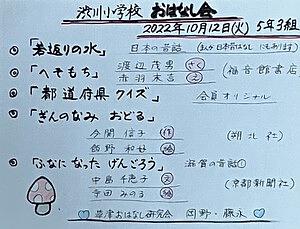 渋川小学校 おはなし会
2022年10月12日(火) 5年3組
「若返りの水」 日本の昔話 (まんが日本昔ばなしにもあります)
「へそもち」 渡辺茂男 さく
赤羽末吉 え (福音館書店)
「都道府県クイズ」 会員オリジナル
「ぎんのなみ おどる」
今関信子 作 (朔北社)
飯野和好 絵
「ふなになった げんごろう」 滋賀の昔話①
中島千恵子 文 (京都新聞社)
寺田みのる 絵
草津おはなし研究会 岡野・藤永